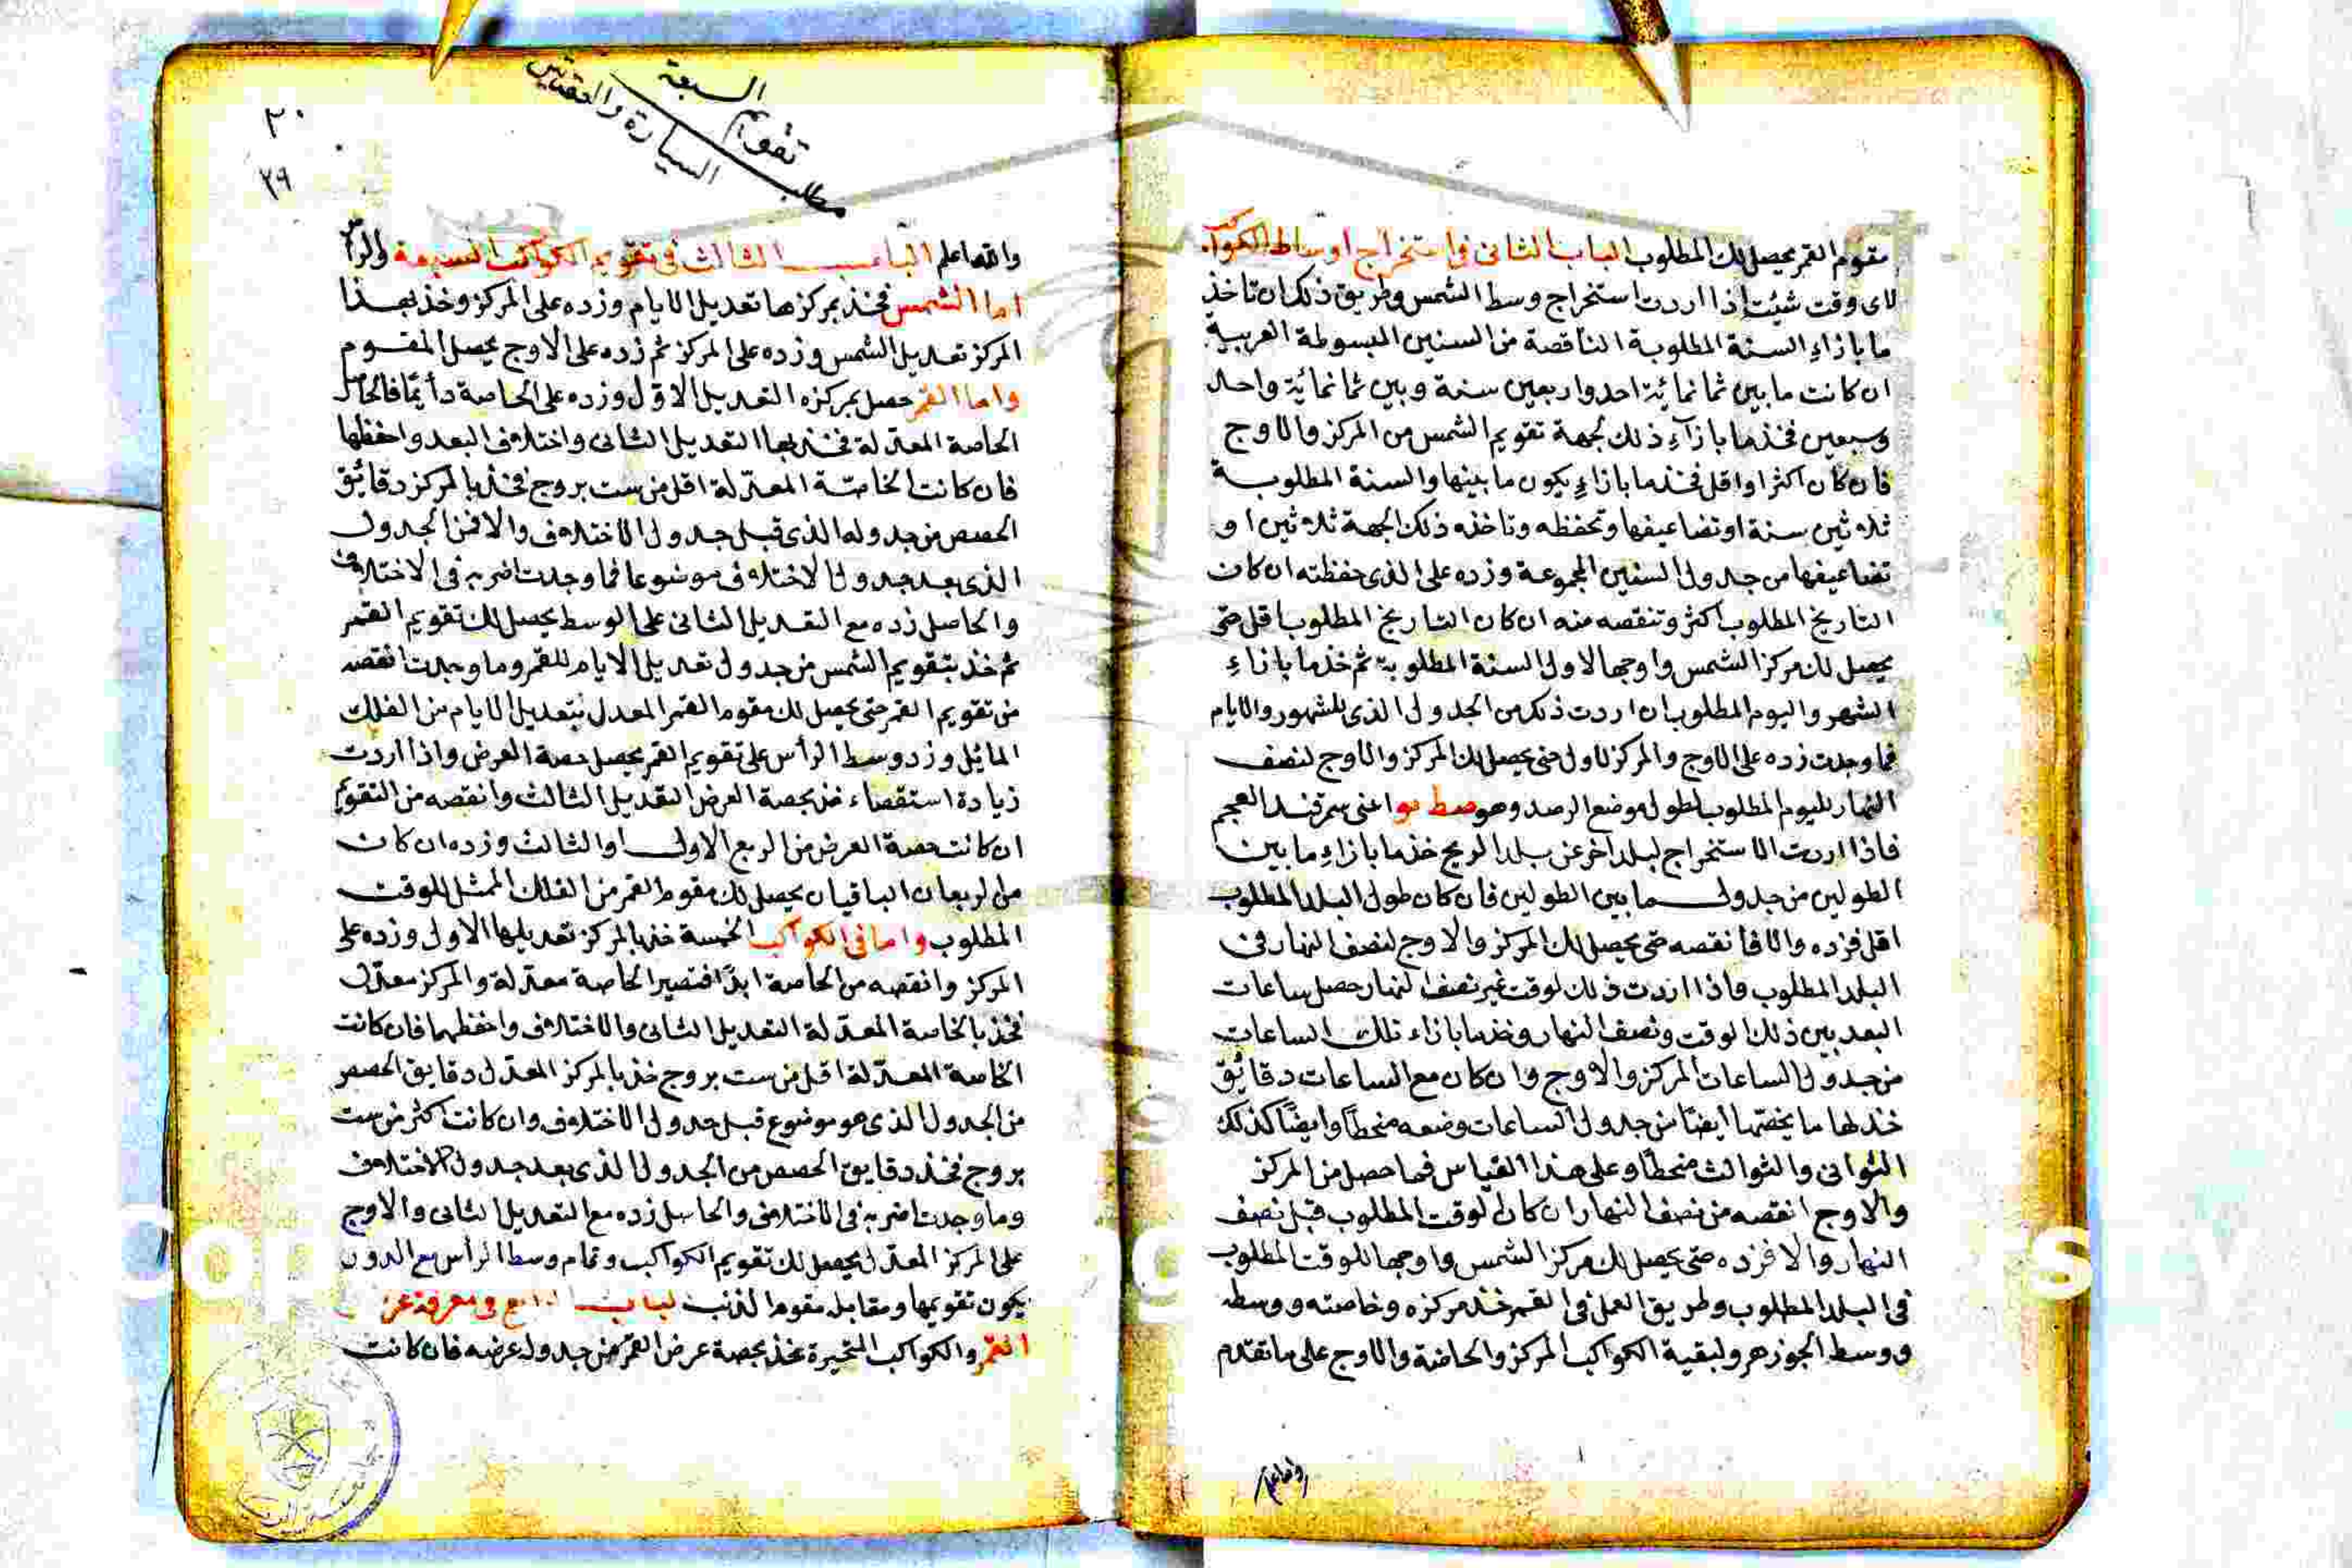 مقوم القمر يحصل لك المطلوب الباب الثانى فى استخراج اوساط الكواكب
لاى وقت شئت اذا اردت استخراج وسط الشمس وطريق ذلك ان تاخذ
ما بازاء السنة المطلوبة الناقصة من السنين المبسوطة العربية
ان كانت ما بين ثمانمائة احد واربعين سنة وبين ثمانمائة واحد
وسبعين فخذ ما بازآء ذلك لجهة تقويم الشمس من المركز والاوج
فان كان اكثر او اقل فخذ ما بازاء يكون ما بينها والسنة المطلوبة
ثلاثين سنة او تضاعيفها وتحفظه وتاخذ ذلك لجهة ثلاثين او
تضاعيفها من جدول السنين المجموعة وزده على الذى حفظته ان كان
التاريخ المطلوب اكثر وتنقصه منه ان كان التاريخ المطلوب اقل حتى
يحصل لك مركز الشمس واوجها لاول السنة المطلوبة ثم خذ ما بازاء
الشهر واليوم المطلوب ان اردت ذلك من الجدول الذى للشهور والايام
فما وجدت زده على الاوج والمركز لاول حتى يحصل لك المركز والاوج لنصف
النهار لليوم المطلوب لطول موضع الرصد وهو صط يو اعنى سمرقند العجم
فاذا اردت الاستخراج لبلد آخر عن بلد الزيج خذ ما بازاء ما بين
الطولين من جدول ما بين الطولين فان كان طول البلد المطلوب
اقل فزده والا فانقصه حتى يحصل لك المركز والاوج لنصف النهار فى
البلد المطلوب واذا اردت ذلك لوقت غير نصف النهار حصل ساعات
البعد بين ذلك الوقت ونصف النهار وخذ ما بازاء تلك الساعات
من جدول الساعات المركز والاوج وان كان مع الساعات دقائق
خذ لها ما يخصها ايضا من جدول الساعات وضعه منحطا وايضا كذلك
الثوانى والثوالث منحطا وعلى هذا القياس فما حصل من المركز
والاوج انقصه من نصف النهار ان كان الوقت المطلوب قبل نصف
النهار والا فزده حتى يحصل لك مركز الشمس واوجها للوقت المطلوب
فى البلد المطلوب وطريق العمل فى القمر خذ مركزه وخاصته ووسطه
ووسط الجوزهر ولبقية الكواكب المركز والخاصة والاوج على ما تقدم
والله اعلم
مطلب تقويم السبعة
السيارة والعقدتين
٢٠
٢٩
والله اعلم الباب الثالث فى تقويم الكواكب السبعة والراس
اما الشمس فخذ بمركزها تعديل الايام وزده على المركز وخذ بهذا
المركز تعديل الشمس وزده على المركز ثم زده على الاوج يحصل المقوم
واما القمر حصل بمركزه التعديل الاول وزده على الخاصة دائما فالحاصل
الخاصة المعدلة فخذ بها التعديل الثانى واختلاف البعد واحفظها
فان كانت الخاصة المعدلة اقل من ست بروج فخذ بالمركز دقائق
الحصص من جدوله الذى قبل جدول الاختلاف والا فمن الجدول
الذى بعد جدول الاختلاف موضوعا فما وجدت اضربه فى الاختلاف
والحاصل زده مع التعديل الثانى على الوسط يحصل لك تقويم القمر
ثم خذ بتقويم الشمس من جدول تعديل الايام للقمر وما وجدت انقصه
من تقويم القمر حتى يحصل لك مقوم القمر المعدل بتعديل الايام من الفلك
المائل وزد وسط الرأس على تقويم القمر يحصل حصة العرض واذا اردت
زيادة استقصاء خذ بحصة العرض التعديل الثالث وانقصه من التقويم
ان كانت حصة العرض من الربع الاول او الثالث وزده ان كان
من الربعان الباقيان يحصل لك مقوم القمر من الفلك الممثل للوقت
المطلوب واما فى الكواكب الخمسة خذ بالمركز تعديلها الاول وزده على
المركز وانقصه من الخاصة ابدا فتصير الخاصة معدلة والمركز معدل
فخذ بالخاصة المعدلة التعديل الثانى والاختلاف واحفظهما فان كانت
الخاصة المعدلة اقل من ست بروج خذ بالمركز المعدل دقايق الحصص
من الجدول الذى هو موضوع قبل جدول الاختلاف وان كانت اكثر من ست
بروج فخذ دقايق الحصص من الجدول الذى بعد جدول الاختلاف
وما وجدت اضربه فى الاختلاف والحاصل زده مع التعديل الثانى والاوج
على المركز المعدل يحصل لك تقويم الكواكب وتمام وسط الرأس مع الدور
يكون تقويمها ومقابل مقوم الذنب الباب الرابع فى معرفة عرض
القمر والكواكب المتحيرة فخذ بحصة عرض القمر من جدول عرضه فان كانت